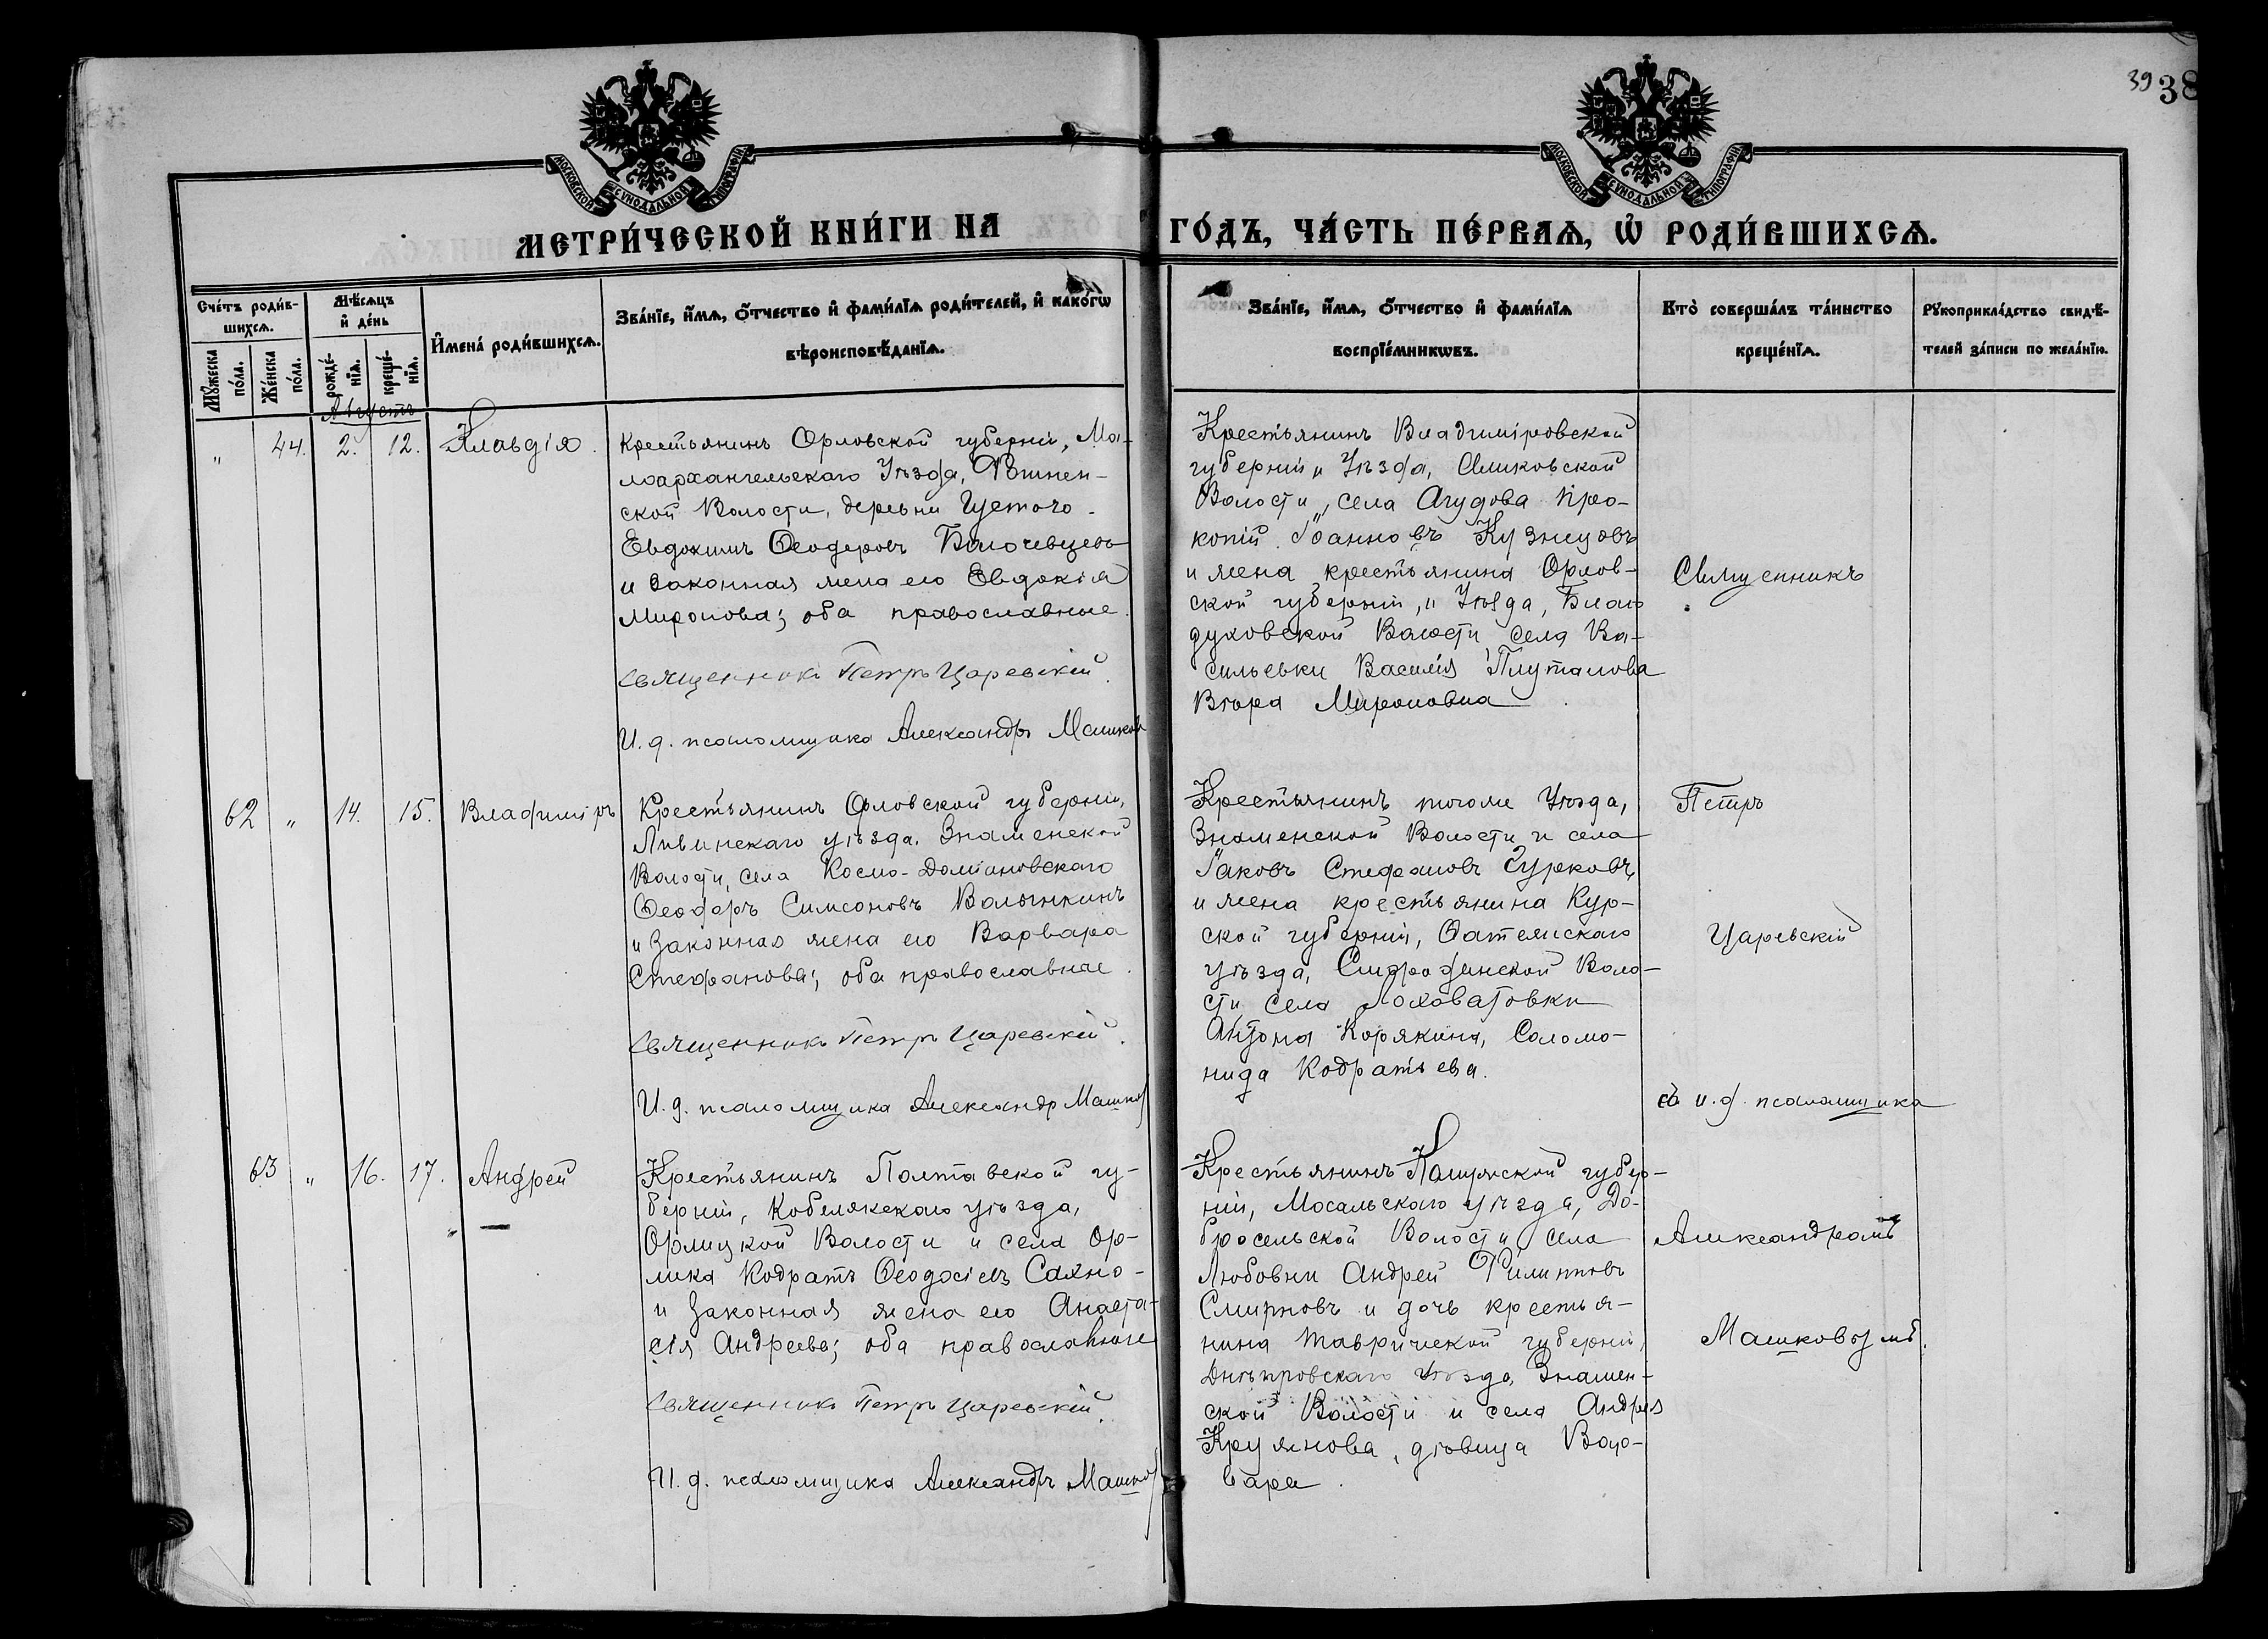 39 38
МОСКОВСКОЙ СѴНОДАЛЬНОЙ ТИПОГРАФІИ
МОСКОВСКОЙ СѴНОДАЛЬНОЙ ТИПОГРАФІИ
МЕТРИ́ЧЕСКОЙ КНИ́ГИ НА ГО́ДЪ, ЧА́СТЬ ПЕ́РВАѦ, Ѡ҆ РОДИ́ВШИХСѦ.
Сче́тъ роди́в-
шихсѧ.
Мꙋ́жеска по́ла.
Же́нска по́ла.
Мѣ́сѧцъ
и҆ де́нь
рожде́-
нїѧ.
креще́-
нїѧ.
И҆мена̀ роди́вшихсѧ.
Зва́нїе, и҆́мѧ, ѻ҆́тчество и҆ фами́лїѧ роди́телей, и҆ како́гѡ
вѣроисповѣ́данїѧ.
Зва́нїе, и҆́мѧ, ѻ҆́тчество и҆ фами́лїѧ
воспрїе́мникѡвъ.
Кто̀ соверша́лъ та́инство
креще́нїѧ.
Рꙋкоприкла́дство свидѣ́-
телей за́писи по жела́нїю.
Августъ
„ 44. 2. 12. Клавдія.
Крестьянинъ Орловской губерніи, Ма-
лоархангельскаго Уѣзда,
ской Волости, деревни Густого
Евдокимъ Ѳеодоровъ
и законная жена его Евдокія
Миронова; оба православные.
Священникъ Петръ Царевскій.
И. д. псаломщика Александръ Машковъ
Крестьянинъ Владимiровской
губерніи и Уѣзда,
Волости, села Агудова Про-
копій Іоанновъ Кузнецовъ
и жена крестьянина Орлов-
ской губерніи, и Уѣзда, Благо
духовской Волости села Ва-
сильевки Василія Плуталова
Вѣра Мироновна
Священникъ
62 „ 14. 15. Владимiръ
Крестьянинъ Орловской губерніи,
Ливинскаго уѣзда, Знаменской
Волости, села Космо-Доміановскаго
Ѳеодоръ Симеоновъ Волынкинъ
и законная жена его Варвара
Стефанова; оба православные.
Священникъ Петръ Царевскій.
И. д. псаломщика Александръ Машков
Крестьянинъ тогоже Уѣзда,
Знаменской Волости и села
Іаковъ Стефановъ Чурковъ,
и жена крестьянина Кур-
ской губерніи, Фатежскаго
уѣзда, Воло-
сти села Лоховатовки
Антона Корякина, Соломо-
нида Кодратьева.
Петръ
Царевскій
съ и. д. псаломщика
63 „ 16. 17. Андрей
„ —
Крестьянинъ Полтавской гу-
берніи, Кобелякскаго уѣзда,
Орлицкой Волости и села Ор-
лика Кодратъ Ѳеодосіевъ Сахно-
и законная жена его Анаста-
сія Андреева; оба православные
Священникъ Петръ Царевскій.
И. д. псаломщика Александръ Машков
Крестьянинъ Калужской губер-
ніи, Мосальскаго уѣзда, До-
бросельской Волости, села
Любовни Андрей Филиповъ
Смирновъ и дочь крестья-
нина Таврической губерніи,
Днѣпровскаго Уѣзда, Знамен-
ской Волости и села Андрея
Кружнова, дѣвица Вар-
вара.
Александромъ
Машковымъ.